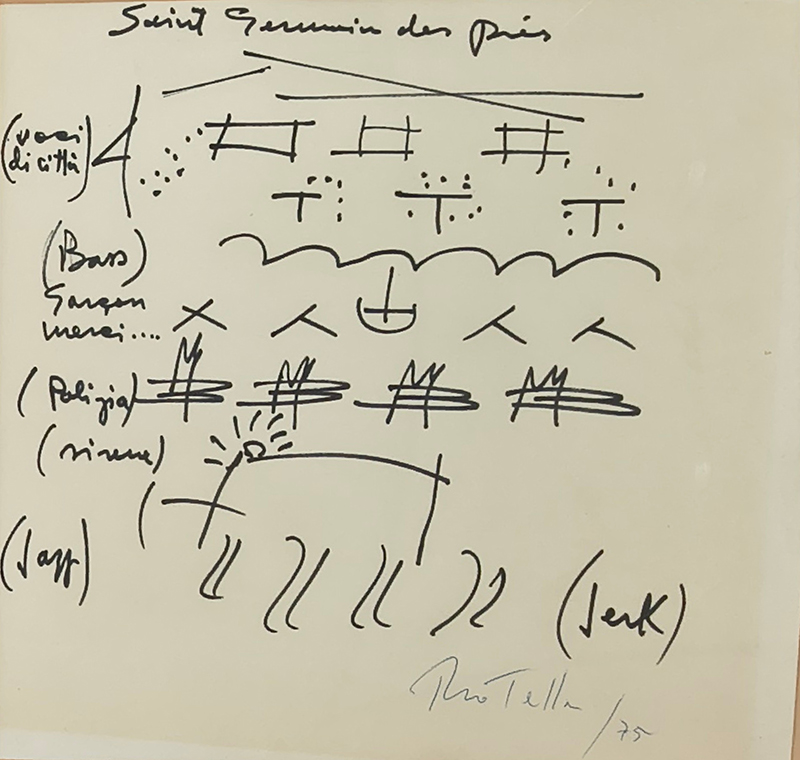 Saint Germain des près
(voci
di città)
(Bass)
Garçon
merci....
(Polizia)
(sirene)
(Jazz)
(Jerk)
Rotella /75